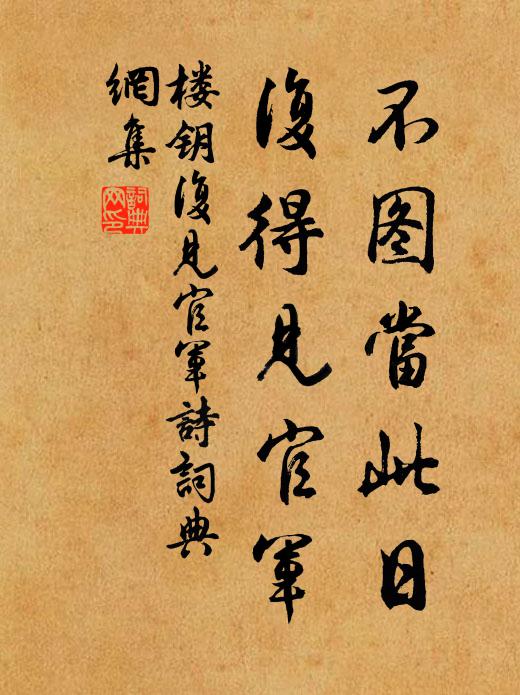 不图當此日
復得見官軍
楼钥復見官軍詩詞典
網集
詞典網印